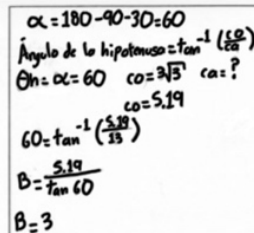 α = 180-90-30=60
Ángulo de la hipotenusa = tan⁻¹ (co/ca)
θh = α = 60 co = 3√3 ca = ?
co = 5.19
60 = tan⁻¹ (5.19/13)
B = 5.19/tan 60
B = 3